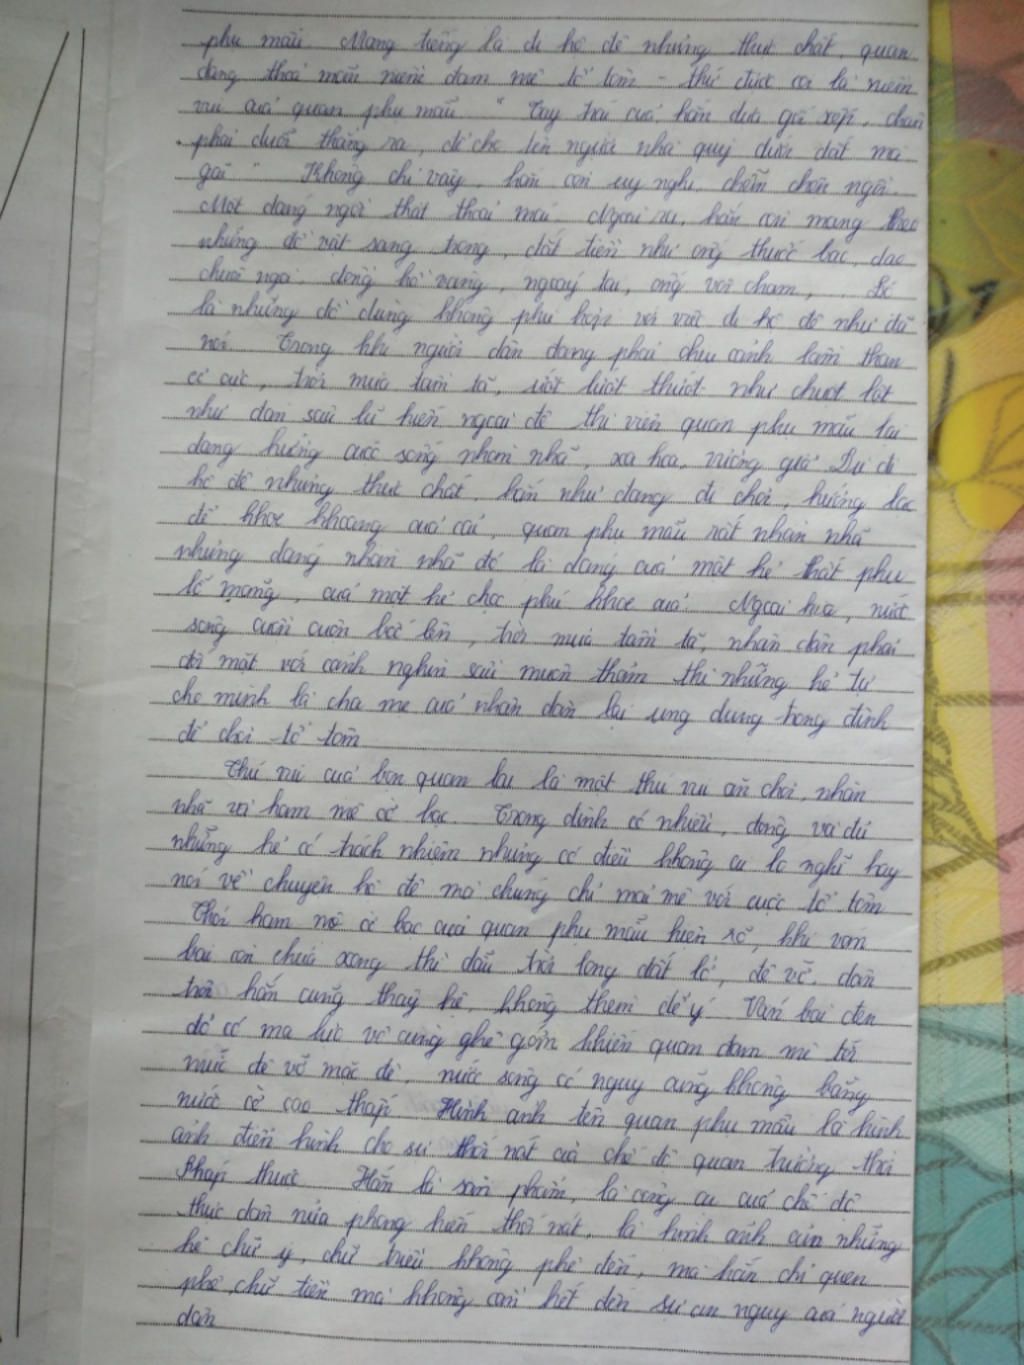 phụ mẫu. Mang tiếng là đi hộ đê nhưng thực chất, quan
đang thoả mãn niềm đam mê tổ tôm - thứ được coi là niềm
vui của quan phụ mẫu. " Tay trái của hắn dựa gối xếp, chân
phải duỗi thẳng ra, để cho tên người nhà quỳ dưới đất mà
gãi " Không chỉ vậy, hắn còn uy nghi, chễm chện ngồi.
Một dáng ngồi thật thoải mái. Ngoài ra, hắn còn mang theo
những đồ vật sang trọng, đắt tiền như ống thuốc bạc, dao
chuôi ngà, đồng hồ vàng, ngoáy tai, ống vôi chạm,... Đó
là những đồ dùng không phù hợp với việc đi hộ đê như đã
nói. Trong khi người dân đang phải chịu cảnh lầm than
cơ cực, trời mưa tầm tã, ướt lướt thướt như chuột lột
như đàn sâu lũ kiến ngoài đê thì viên quan phụ mẫu lại
đang hưởng cuộc sống nhàn nhã, xa hoa, vương giả. Dự đi
hộ đê nhưng thực chất, hắn như đang đi chơi, hưởng lạc
để khoe khoang của cải, quan phụ mẫu rất nhàn nhã
nhưng dáng nhàn nhã đó là dáng của một kẻ thất phu
lỗ mãng, của một kẻ học phú khoe của. Ngoài kia, nước
sông cuồn cuộn bốc lên, trời mưa tầm tã, nhân dân phải
đối mặt với cảnh nghìn sầu muôn thảm thì những kẻ tự
cho mình là cha mẹ của nhân dân lại ung dung trong đình
để chơi tổ tôm
Thú vui của bọn quan lại là một thú vui ăn chơi, nhàn
nhã và ham mê cờ bạc. Trong đình có nhiều, đông và đủ
những kẻ có trách nhiệm nhưng có điều không ai lo nghĩ hay
nói về chuyện hộ đê mà chúng chỉ mải mê với cuộc tổ tôm
Thói ham mê cờ bạc của quan phụ mẫu hiện rõ, khi ván
bài còn chưa xong thì dẫu trời long đất lở, đê vỡ, dân
trôi hắn cũng thây kệ, không thèm để ý. Ván bài đen
đỏ có ma lực vô cùng ghê gớm khiến quan đam mê tới
mức đê vỡ mặc đê, nước sông có nguy cũng không bằng
nước cờ cao thấp. Hình ảnh tên quan phụ mẫu là hình
ảnh điển hình cho sự thối nát của chế độ quan trường thời
Pháp thuộc. Hắn là sản phẩm, là công cụ của chế độ
thực dân nửa phong kiến thối nát, là hình ảnh của những
kẻ chữ ý, chữ triều không phê đến, mà hắn chỉ quen
phê chữ tiền mà không cần biết đến sự an nguy của người
dân